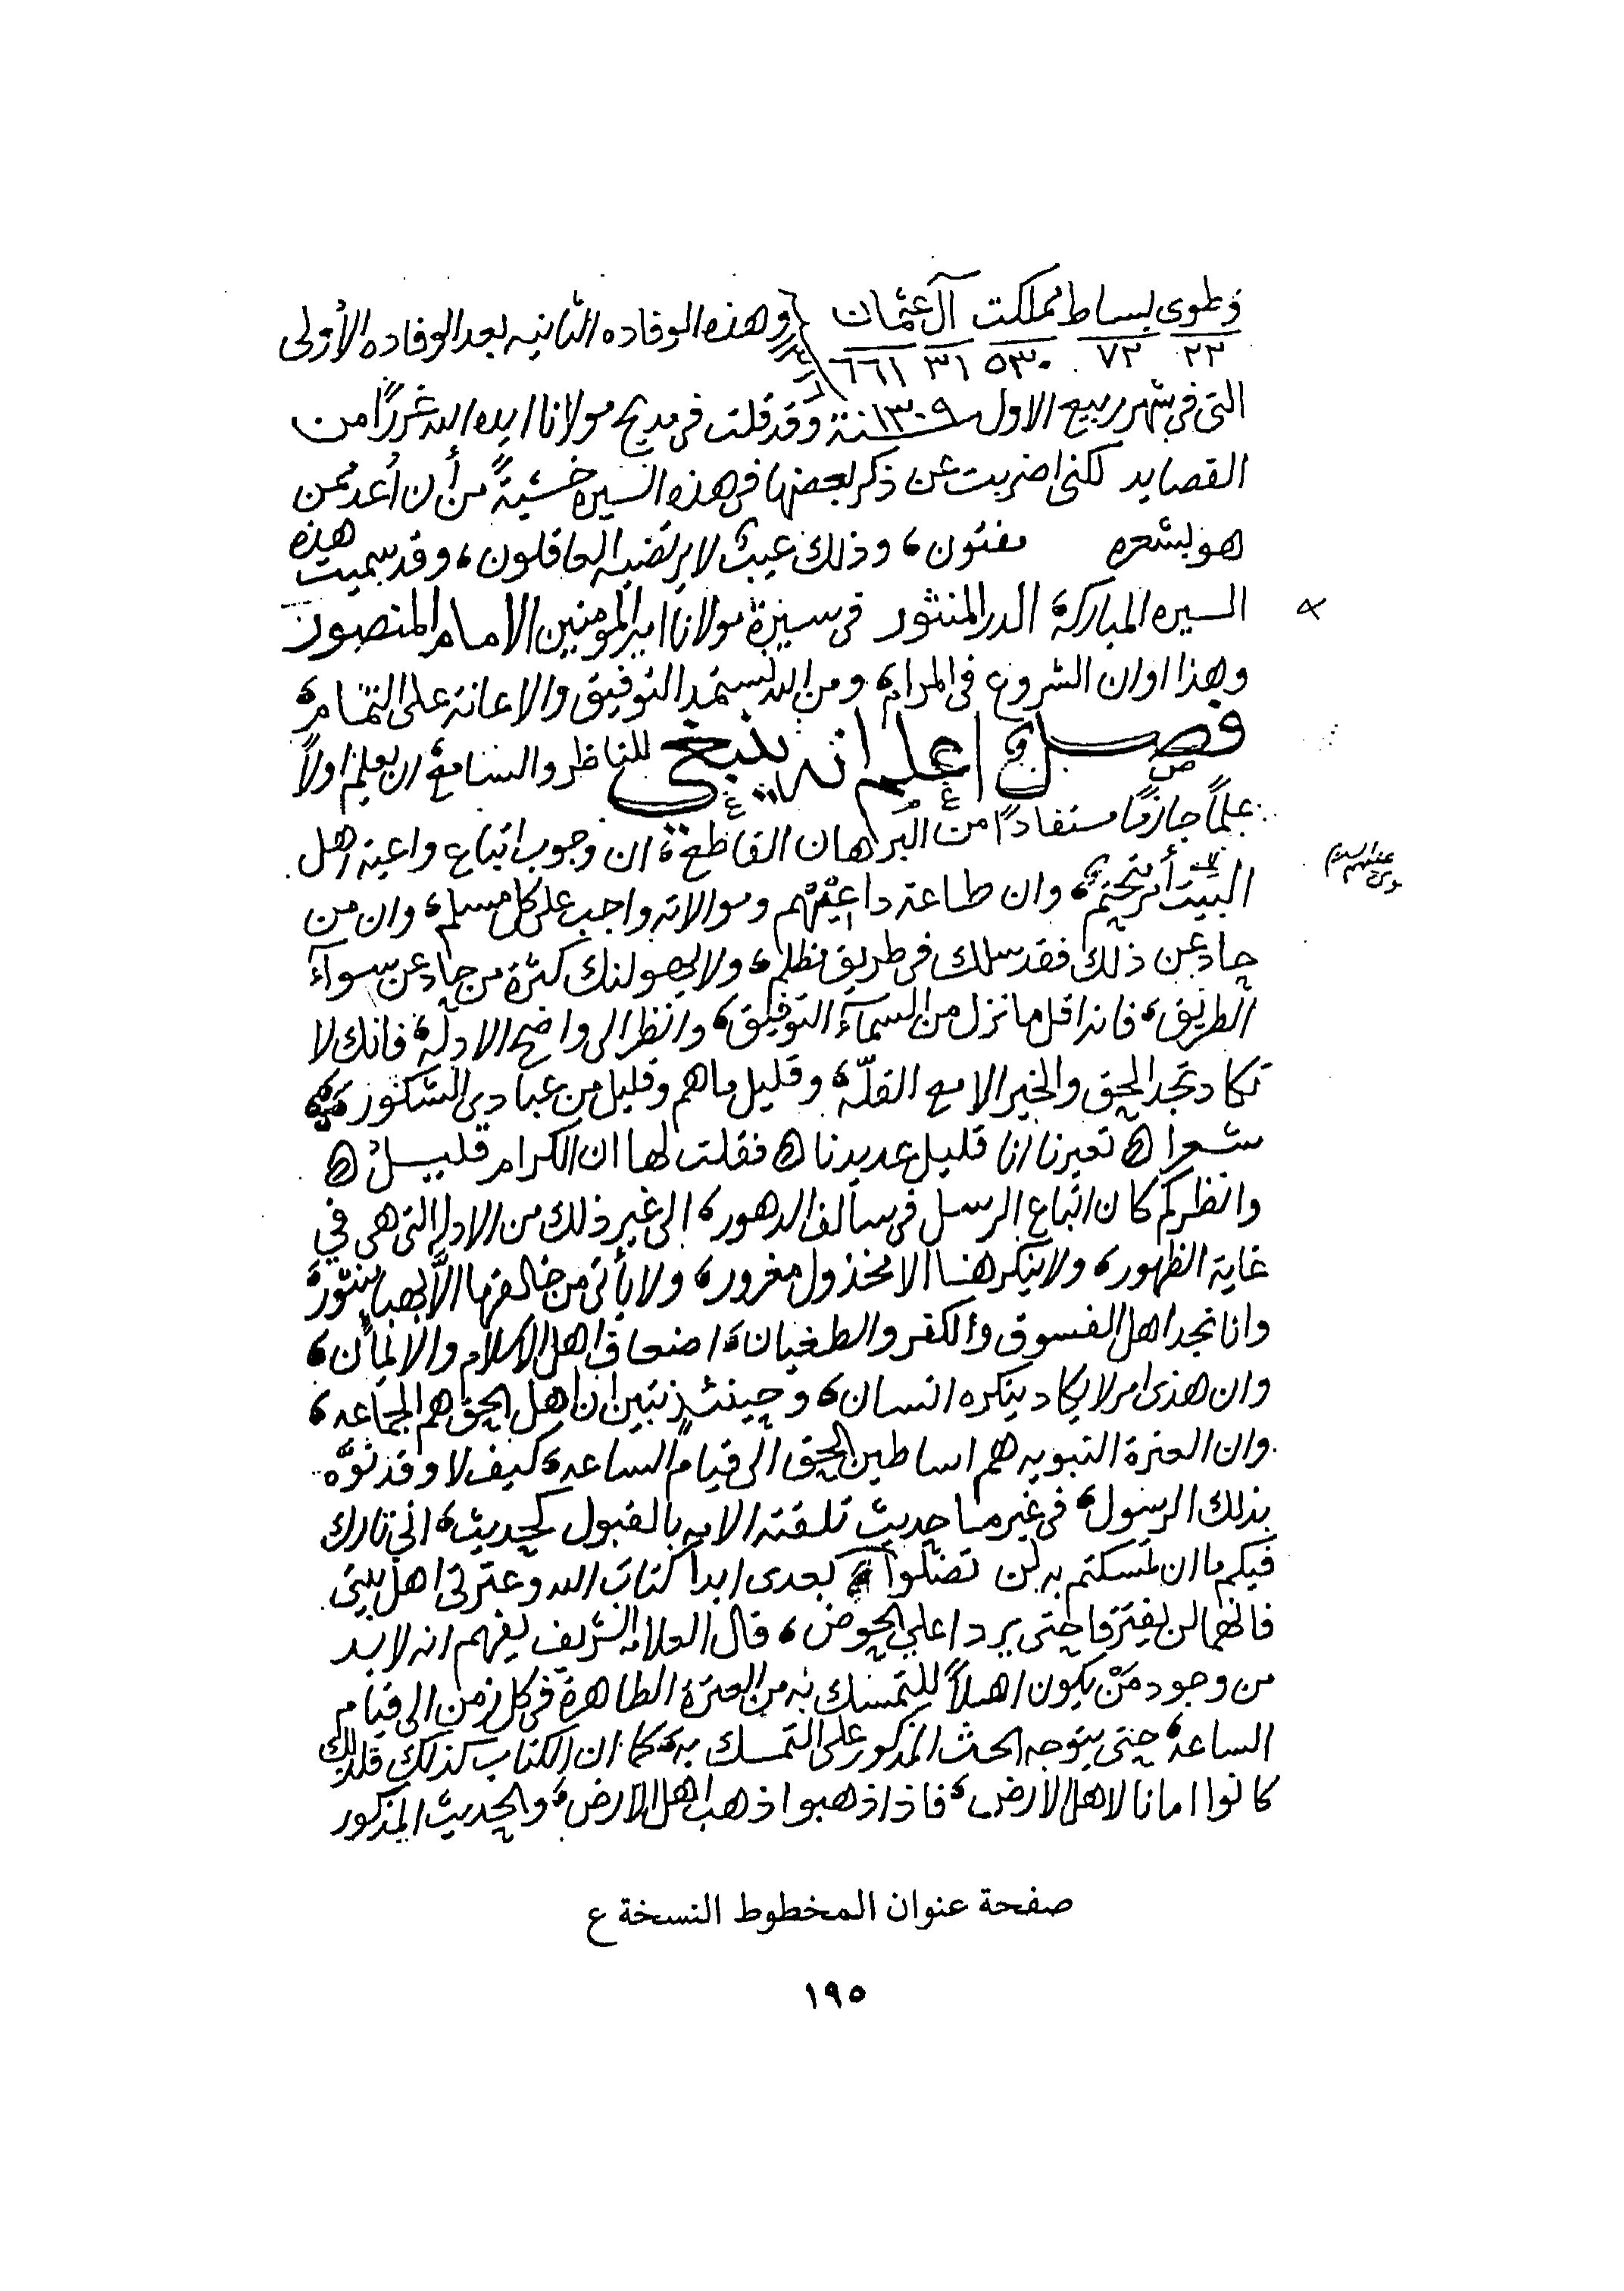 وطوى بساط مملكت آل عثمان وهذه الوفاده الثانيه بعد الوفاده الأولى
٢٣ ٧٢ ٥٣٠ ٣١ ٦٦١
التى فى شهر ربيع الاول سنة ١٣٠٩ وقد قلت فى مديح مولانا ايده الله غررًا من
القصايد لكنى اضربت عن ذكر بعضها فى هذه السيره خشيةً من أن أعد ممن
هو بشعره مفتون، وذلك عيبٌ لا يرتضيه العاقلون، وقد سميت هذه
السيره المباركة، الدر المنثور فى سيرة مولانا امير المومنين الامام المنصور
وهذا اوان الشروع فى المرام، ومن الله نستمد التوفيق والاعانة على التمام،
فصل اعلم انه ينبغي للناظر والسامع، ان يعلم اولاً
علمًا جازمًا مستفادًا من البرهان القاطع، ان وجوب اتباع داعية اهل
البيت أمر متحتم، وان طاعة داعيهم وموالاته واجب على كل مسلم، وان من
حاد عن ذلك فقد سلك فى طريق مظلم، ولا يهولنك كثرة من حاد عن سوآء
الطريق، فانه اقل ما نزل من السمآء التوفيق، وانظر الى واضح الادلة، فانك لا
تكاد تجد الحق والخير الا مع القلّة، وقليل ما هم وقليل من عبادي الشكور
شعرا تعيرنا انا قليل عديدنا فقلت لها ان الكرام قليلُ
وانظر كم كان اتباع الرسل فى سالف الدهور، الى غير ذلك من الادله التى هى في
غاية الظهور، ولا ينكر هذا الا مخذول مغرور، ولا يأتى من خالفها الاَّ بهبا منثور،
وانا نجد اهل الفسوق والكفر والطغيان، اضعاف اهل الاسلام والايمان،
وان هذى امر لا يكاد ينكره انسان، وحينئذ تبين ان اهل الحق هم الجماعه،
وان العترة النبويه هم اساطين الحق الى قيام الساعه، كيف لا وقد نوَّه
بذلك الرسول، فى غير ما حديث تلقته الامه بالقبول كحديث، اني تارك
فيكم ما ان تمسكتم به لن تضلوا بعدى ابدا كتاب الله وعترتى اهل بيتى
فانهما لن يفترقا حتى يردا علي الحوض، قال العلامه الشريف يفهم انه لا بد
من وجود مَنْ يكون اهلاً للتمسك به من العترة الطاهرة فى كل زمن الى قيام
الساعة، حتى يتوجه الحث المذكور على التمسك به، كما ان الكتاب كذلك فلذلك
كانوا امانا لاهل الارض، فاذا ذهبوا ذهب اهل الارض، والحديث المذكور
صفحة عنوان المخطوط النسخة ع
١٩٥